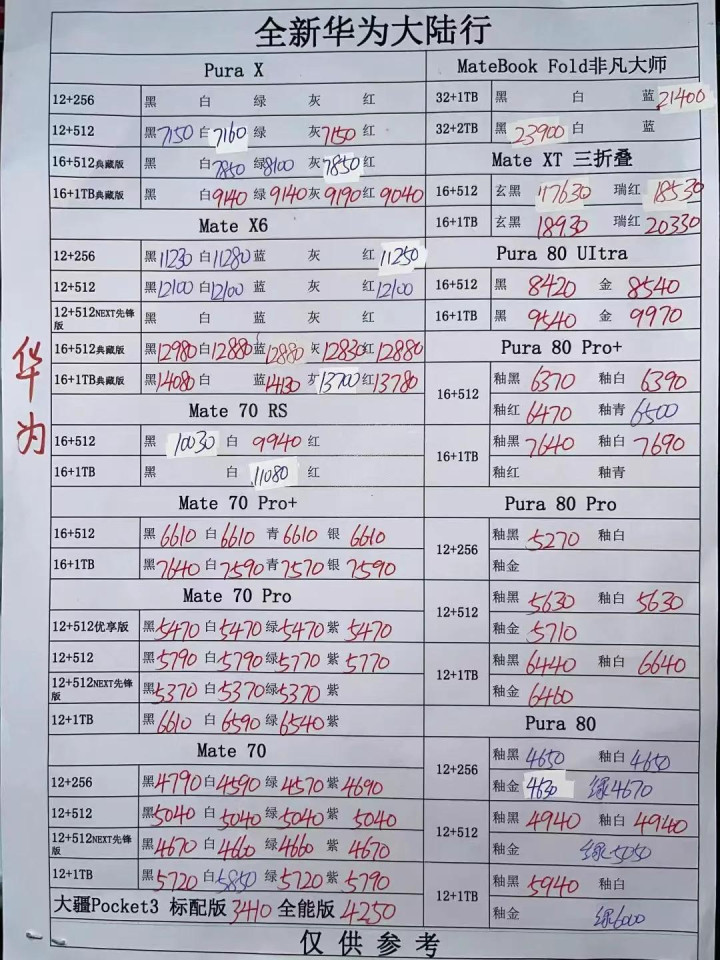 全新华为大陆行
华为
Pura X
12+256 黑 白 绿 灰 红
12+512 黑7150 白7160 绿 灰7150 红
16+512典藏版 黑 白7850 绿8100 灰7850 红
16+1TB典藏版 黑 白9140 绿9140 灰9190 红9040
Mate X6
12+256 黑11230 白11280 蓝 灰 红11250
12+512 黑12100 白12100 蓝 灰 红12100
12+512NEXT先锋版 黑 白 蓝 灰 红
16+512典藏版 黑12980 白12880 蓝12880 灰12830 红12880
16+1TB典藏版 黑14080 白 蓝14130 灰13700 红13780
Mate 70 RS
16+512 黑 10030 白 9940 红
16+1TB 黑 白 11080 红
Mate 70 Pro+
16+512 黑6610 白6610 青6610 银 6610
16+1TB 黑7640 白7590 青7570 银 7590
Mate 70 Pro
12+512优享版 黑5470 白5470 绿5470 紫 5470
12+512 黑5790 白5790 绿5770 紫 5770
12+512NEXT先锋版 黑5370 白5370 绿5370 紫
12+1TB 黑6610 白6590 绿6540 紫
Mate 70
12+256 黑4790 白4590 绿4570 紫4690
12+512 黑5040 白5040 绿5040 紫 5040
12+512NEXT先锋版 黑4670 白4660 绿4660 紫 4670
12+1TB 黑5720 白5850 绿5720 紫5790
大疆Pocket3 标配版 3410 全能版 4250
MateBook Fold非凡大师
32+1TB 黑 白 蓝21400
32+2TB 黑23900 白 蓝
Mate XT 三折叠
16+512 玄黑 17630 瑞红 18530
16+1TB 玄黑 18930 瑞红 20330
Pura 80 UItra
16+512 黑 8420 金 8540
16+1TB 黑 9540 金 9970
Pura 80 Pro+
16+512 釉黑 6370 釉白 6390
釉红 6470 釉青 6500
16+1TB 釉黑 7640 釉白 7690
釉红 釉青
Pura 80 Pro
12+256 釉黑 5270 釉白
釉金
12+512 釉黑 5630 釉白 5630
釉金 5710
12+1TB 釉黑 6440 釉白 6640
釉金 6460
Pura 80
12+256 釉黑 4650 釉白 4650
釉金 4630 绿4670
12+512 釉黑 4940 釉白 4940
釉金 绿5050
12+1TB 釉黑 5940 釉白
釉金 绿6000
仅供参考